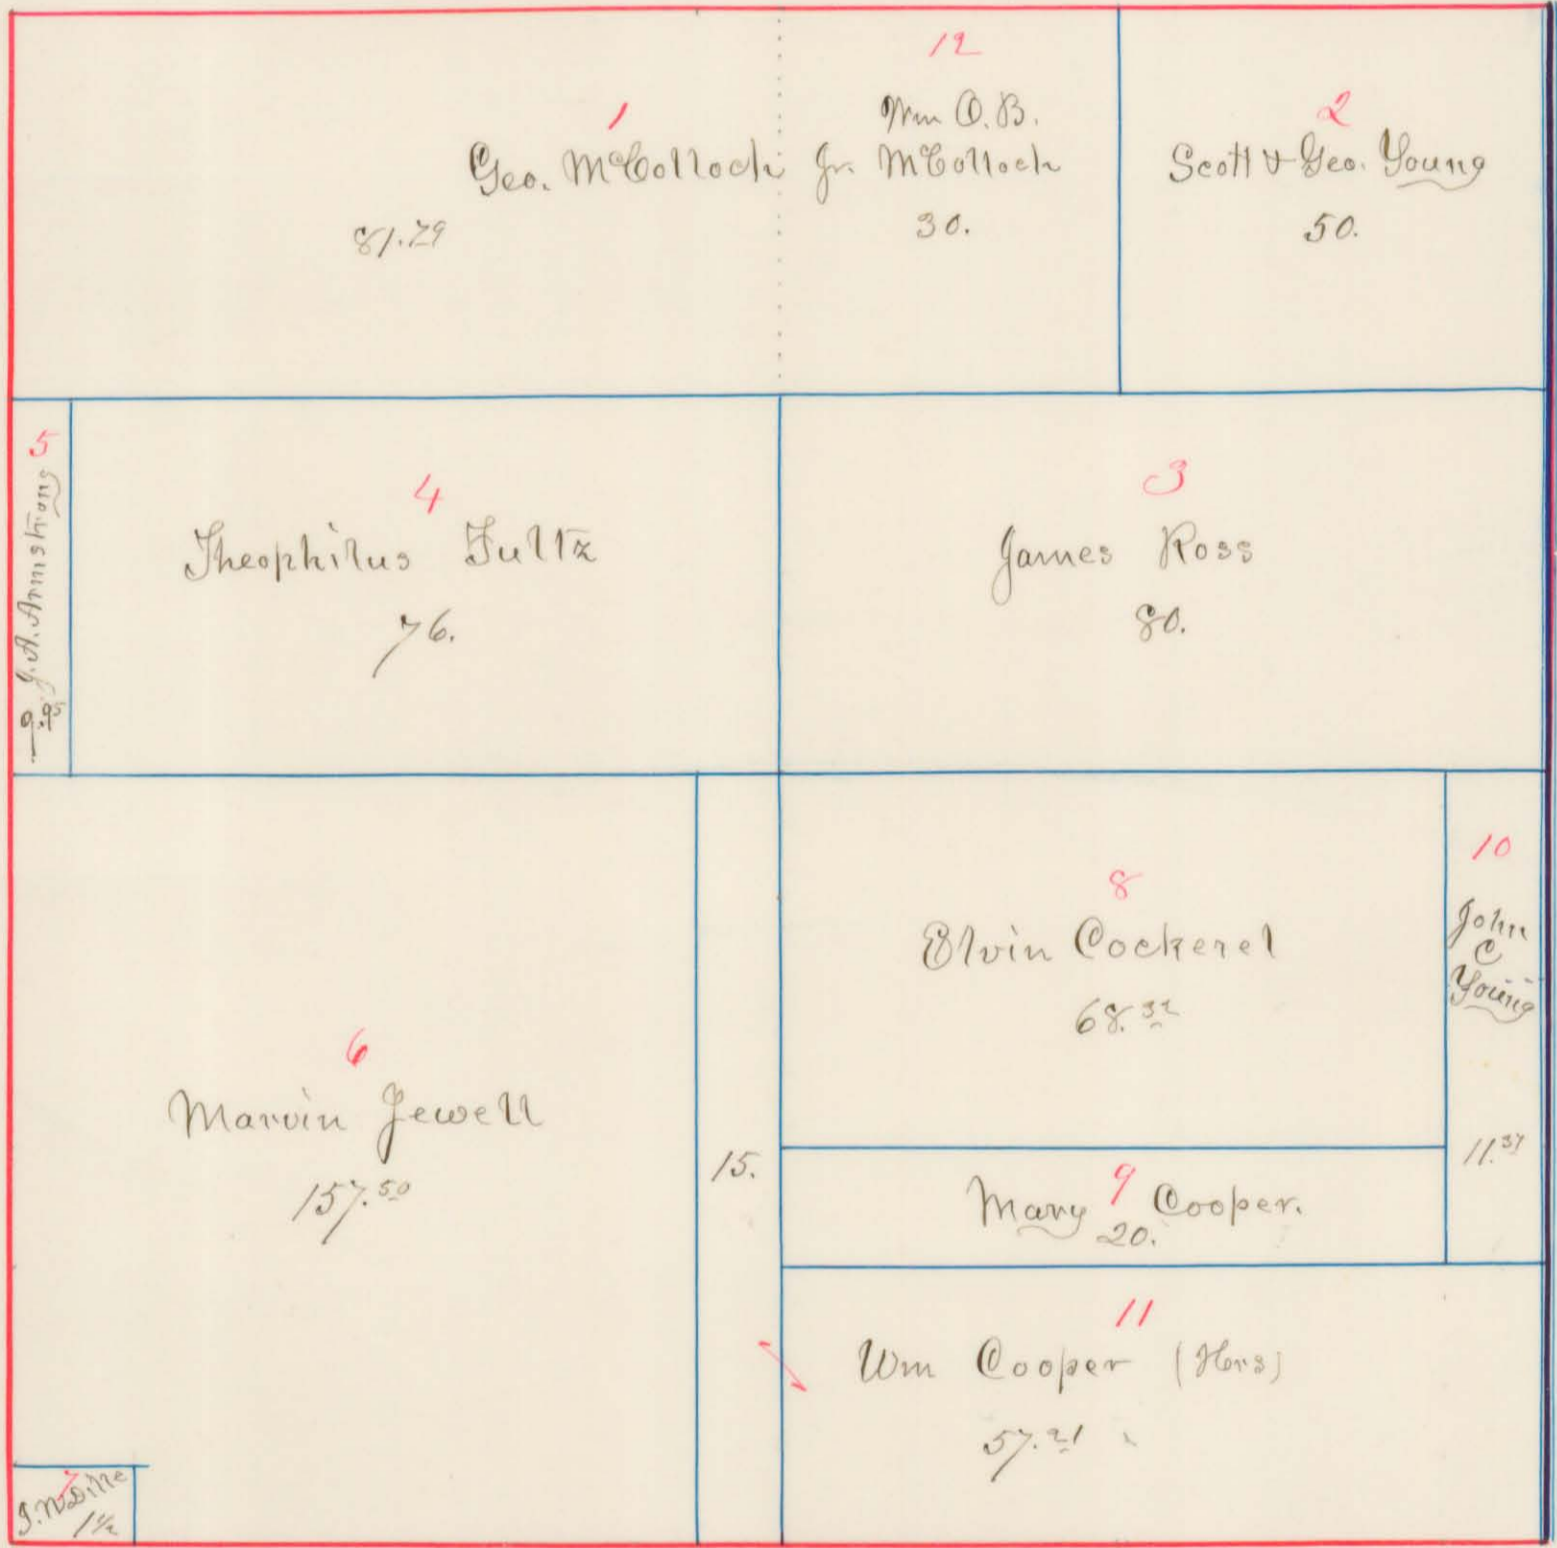 1
Geo. McCollock Jr.
81.79
12
Wm O.B.
McCollock
30.
2
Scott & Geo. Young
50.
5
J. A. Armstrong
4
Theophilus Fultz
76.
3
James Ross
80.
6
Marvin Jewell
157.50
15.
8
Elvin Cockerel
68.32
10
John
C
Young
11.37
9
Mary Cooper.
20.
11
Wm Cooper (Hrs)
57.21
7
J. N. Dille
1 1/2